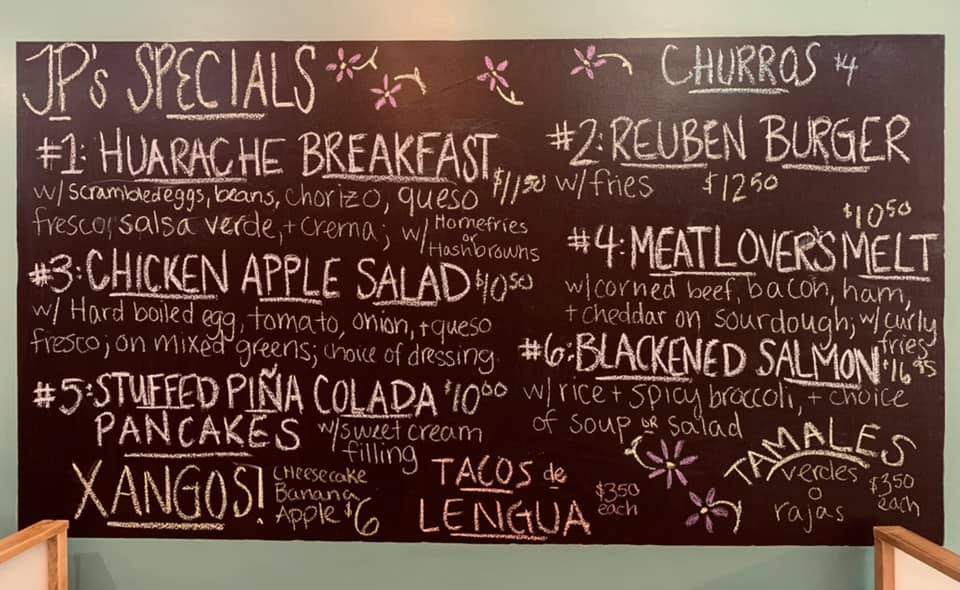 JP's SPECIALS
CHURROS $4
#1: HUARACHE BREAKFAST $11.50
w/ scrambled eggs, beans, chorizo, queso
fresco, salsa verde, + crema; w/ Homefries
or
Hashbrowns
#2: REUBEN BURGER
w/ fries $12.50
#3: CHICKEN APPLE SALAD $10.50
w/ Hard boiled egg, tomato, onion, + queso
fresco; on mixed greens; choice of dressing
$10.50
#4: MEATLOVER'S MELT
w/ corned beef, bacon, ham,
+ cheddar on sourdough; w/ curly
fries
#5: STUFFED PIÑA COLADA $10.00
PANCAKES w/ sweet cream
filling
#6: BLACKENED SALMON $16.95
w/ rice + spicy broccoli, + choice
of soup or salad
XANGOS!
Cheesecake
Banana
Apple $6
TACOS de
LENGUA
$3.50
each
TAMALES
verdes
o
rajas
$3.50
each